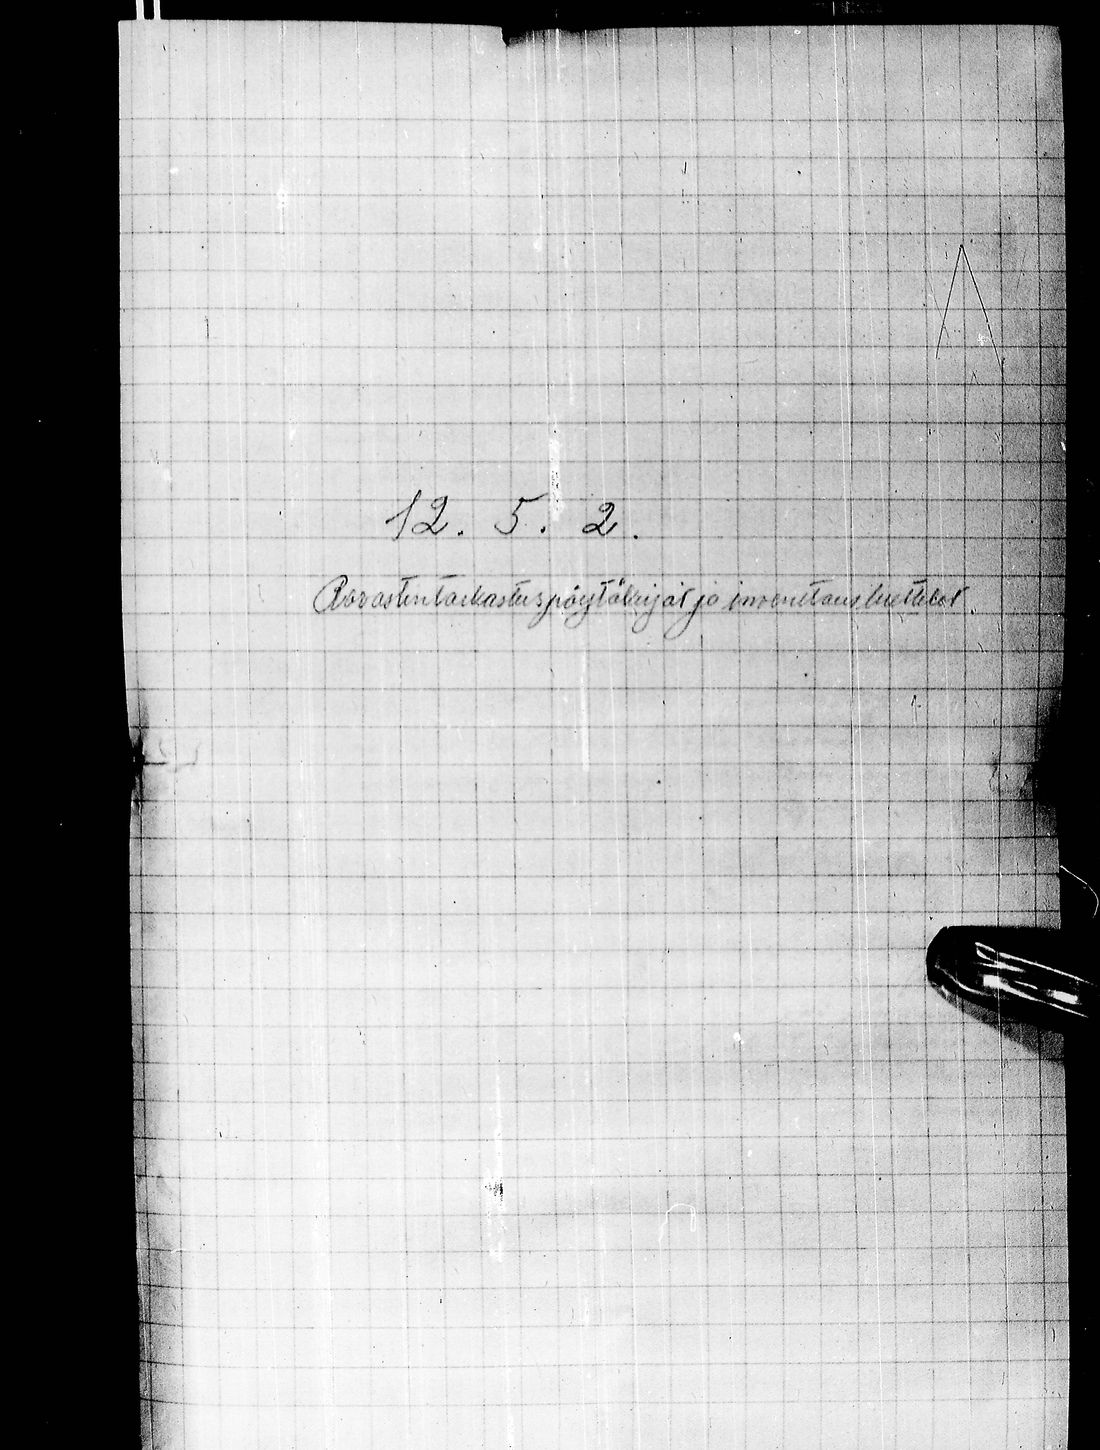 12. 5. 2.
Varastontarkastuspöytäkirjat ja inventausluettelot.